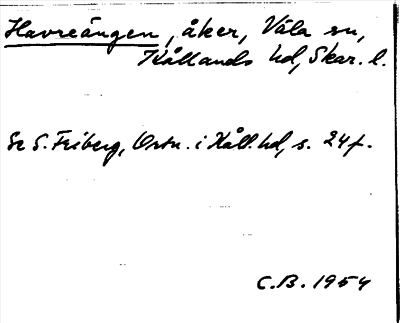 Havreängen, åker, Våla sn,
Kållands hd, Skar. l.
Se S. Friberg, Ortn. i Kåll. hd, s. 24 f.
C.B. 1954